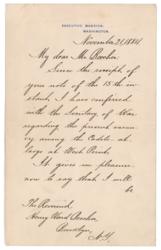 EXECUTIVE MANSION,
WASHINGTON.
November 21, 1884
My dear Mr. Beecher
Since the receipt of
your note of the 15th in-
stant, I have conferred
with the Secretary of War
regarding the present vacancy
among the Cadets at
large at West Point.
It gives me pleasure
now to say that I will
be
The Reverend
Henry Ward Beecher,
Brooklyn,
N.Y.